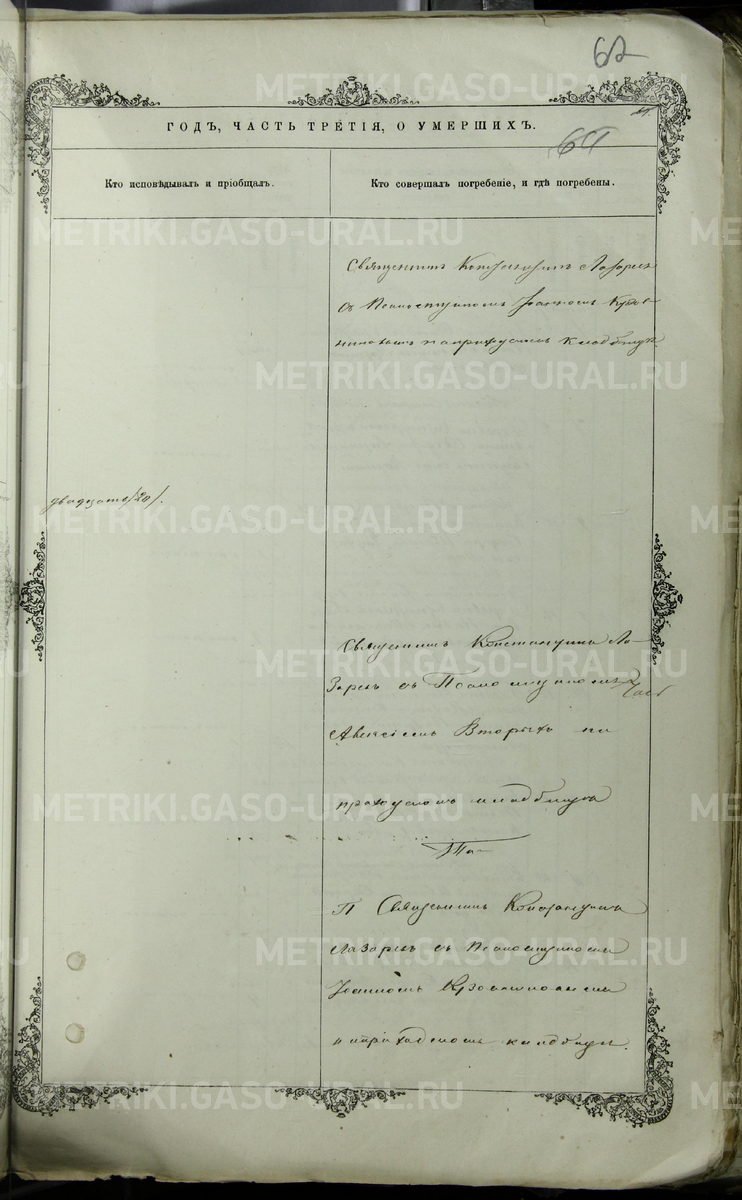 62
ГОДЪ, ЧАСТЬ ТРЕТІЯ, О УМЕРШИХЪ.
Кто исповѣдывалъ и пріобщалъ.
Кто совершалъ погребеніе, и гдѣ погребены.
Священникъ Константинъ Лазаревъ
съ Псаломщикомъ Іоанномъ
на приходскомъ кладбищѣ.
двадцать /20/.
Священникъ Константинъ Ла-
заревъ съ Псаломщикомъ
Алексіемъ Вторыхъ на
приходскомъ кладбищѣ
Священникъ Константинъ
Лазаревъ съ Псаломщикомъ
Іоанномъ
на приходскомъ кладбищѣ.
METRIKI.GASO-URAL.RU